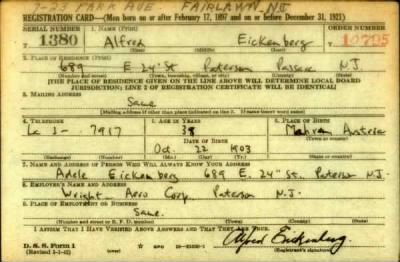 7-23 PARK AVE FAIRLAWN, NJ
REGISTRATION CARD—(Men born on or after February 17, 1897 and on or before December 31, 1921)
SERIAL NUMBER 1. NAME (Print) ORDER NUMBER
T 1380 Alfred Eickenberg 10795
(First) (Middle) (Last)
2. PLACE OF RESIDENCE (Print)
689 E 24th St Paterson Passaic N.J.
(Number and street) (Town, township, village, or city) (County) (State)
[THE PLACE OF RESIDENCE GIVEN ON THE LINE ABOVE WILL DETERMINE LOCAL BOARD
JURISDICTION; LINE 2 OF REGISTRATION CERTIFICATE WILL BE IDENTICAL]
3. MAILING ADDRESS
Same
[Mailing address if other than place indicated on line 2. If same insert word same]
4. TELEPHONE 5. AGE IN YEARS 6. PLACE OF BIRTH
La 3- 7917 38 Mahren
DATE OF BIRTH (Town or county)
Oct. 22 1903 Austria
(Exchange) (Number) (Mo.) (Day) (Yr.) (State or country)
7. NAME AND ADDRESS OF PERSON WHO WILL ALWAYS KNOW YOUR ADDRESS
Adele Eickenberg 689 E. 24th St. Paterson N.J.
8. EMPLOYER'S NAME AND ADDRESS
Wright Aero Corp. Paterson N.J.
9. PLACE OF EMPLOYMENT OR BUSINESS
Same.
(Number and street or R. F. D. number) (Town) (County) (State)
I AFFIRM THAT I HAVE VERIFIED ABOVE ANSWERS AND THAT THEY ARE TRUE.
D. S. S. Form 1 GPO Alfred Eickenberg
(Registrant's signature)